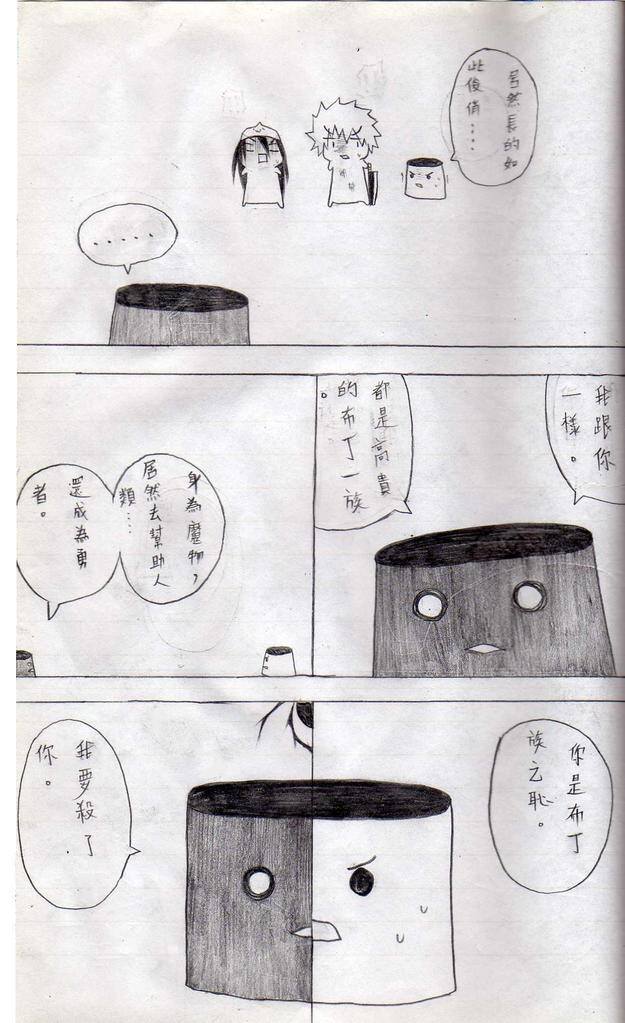 居然長的如
此俊俏....
.....
我跟你
一樣。
都是高貴
的布丁一族
。
身為魔物，
居然去幫助人
類....
還成為勇
者。
你是布丁
族之恥。
我要殺了
你。